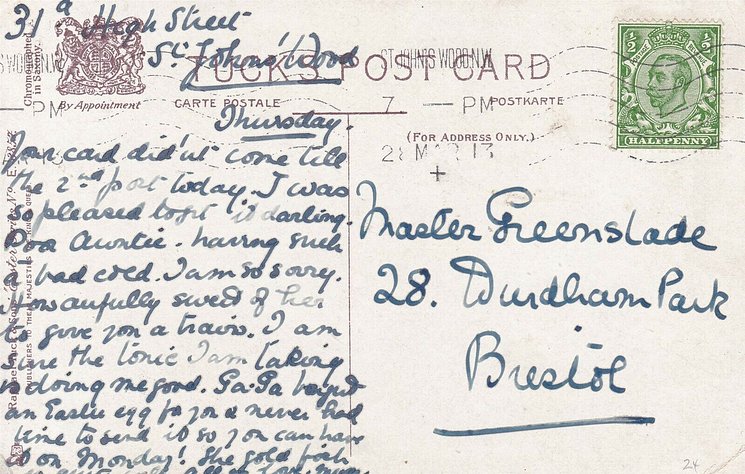 31a High Street
St Johns Wood
Thursday.
Your card did'nt come till
the 2nd post today. I was
so pleased to get it darling.
Poor Auntie. having such
a bad cold. I am so sorry.
How awfully sweet of her
to give you a train. I am
sure the tonic I am taking
is doing me good. Pa-Pa bought
an Easter egg for you & never had
time to send it so you can have
it on Monday! The gold fish
all
TUCK'S POST CARD
CARTE POSTALE
POSTKARTE
(FOR ADDRESS ONLY.)
By Appointment
Chromographed
in Saxony.
ST JOHN'S WOOD N.W.
S WOOD N.W.
PM
7 - PM
28 MAR 13
+
1/2
1/2
HALFPENNY
Master Greenslade
28. Durdham Park
Bristol
Raphael Tuck & Sons'
PUBLISHERS TO THEIR MAJESTIES THE KING & QUEEN
24